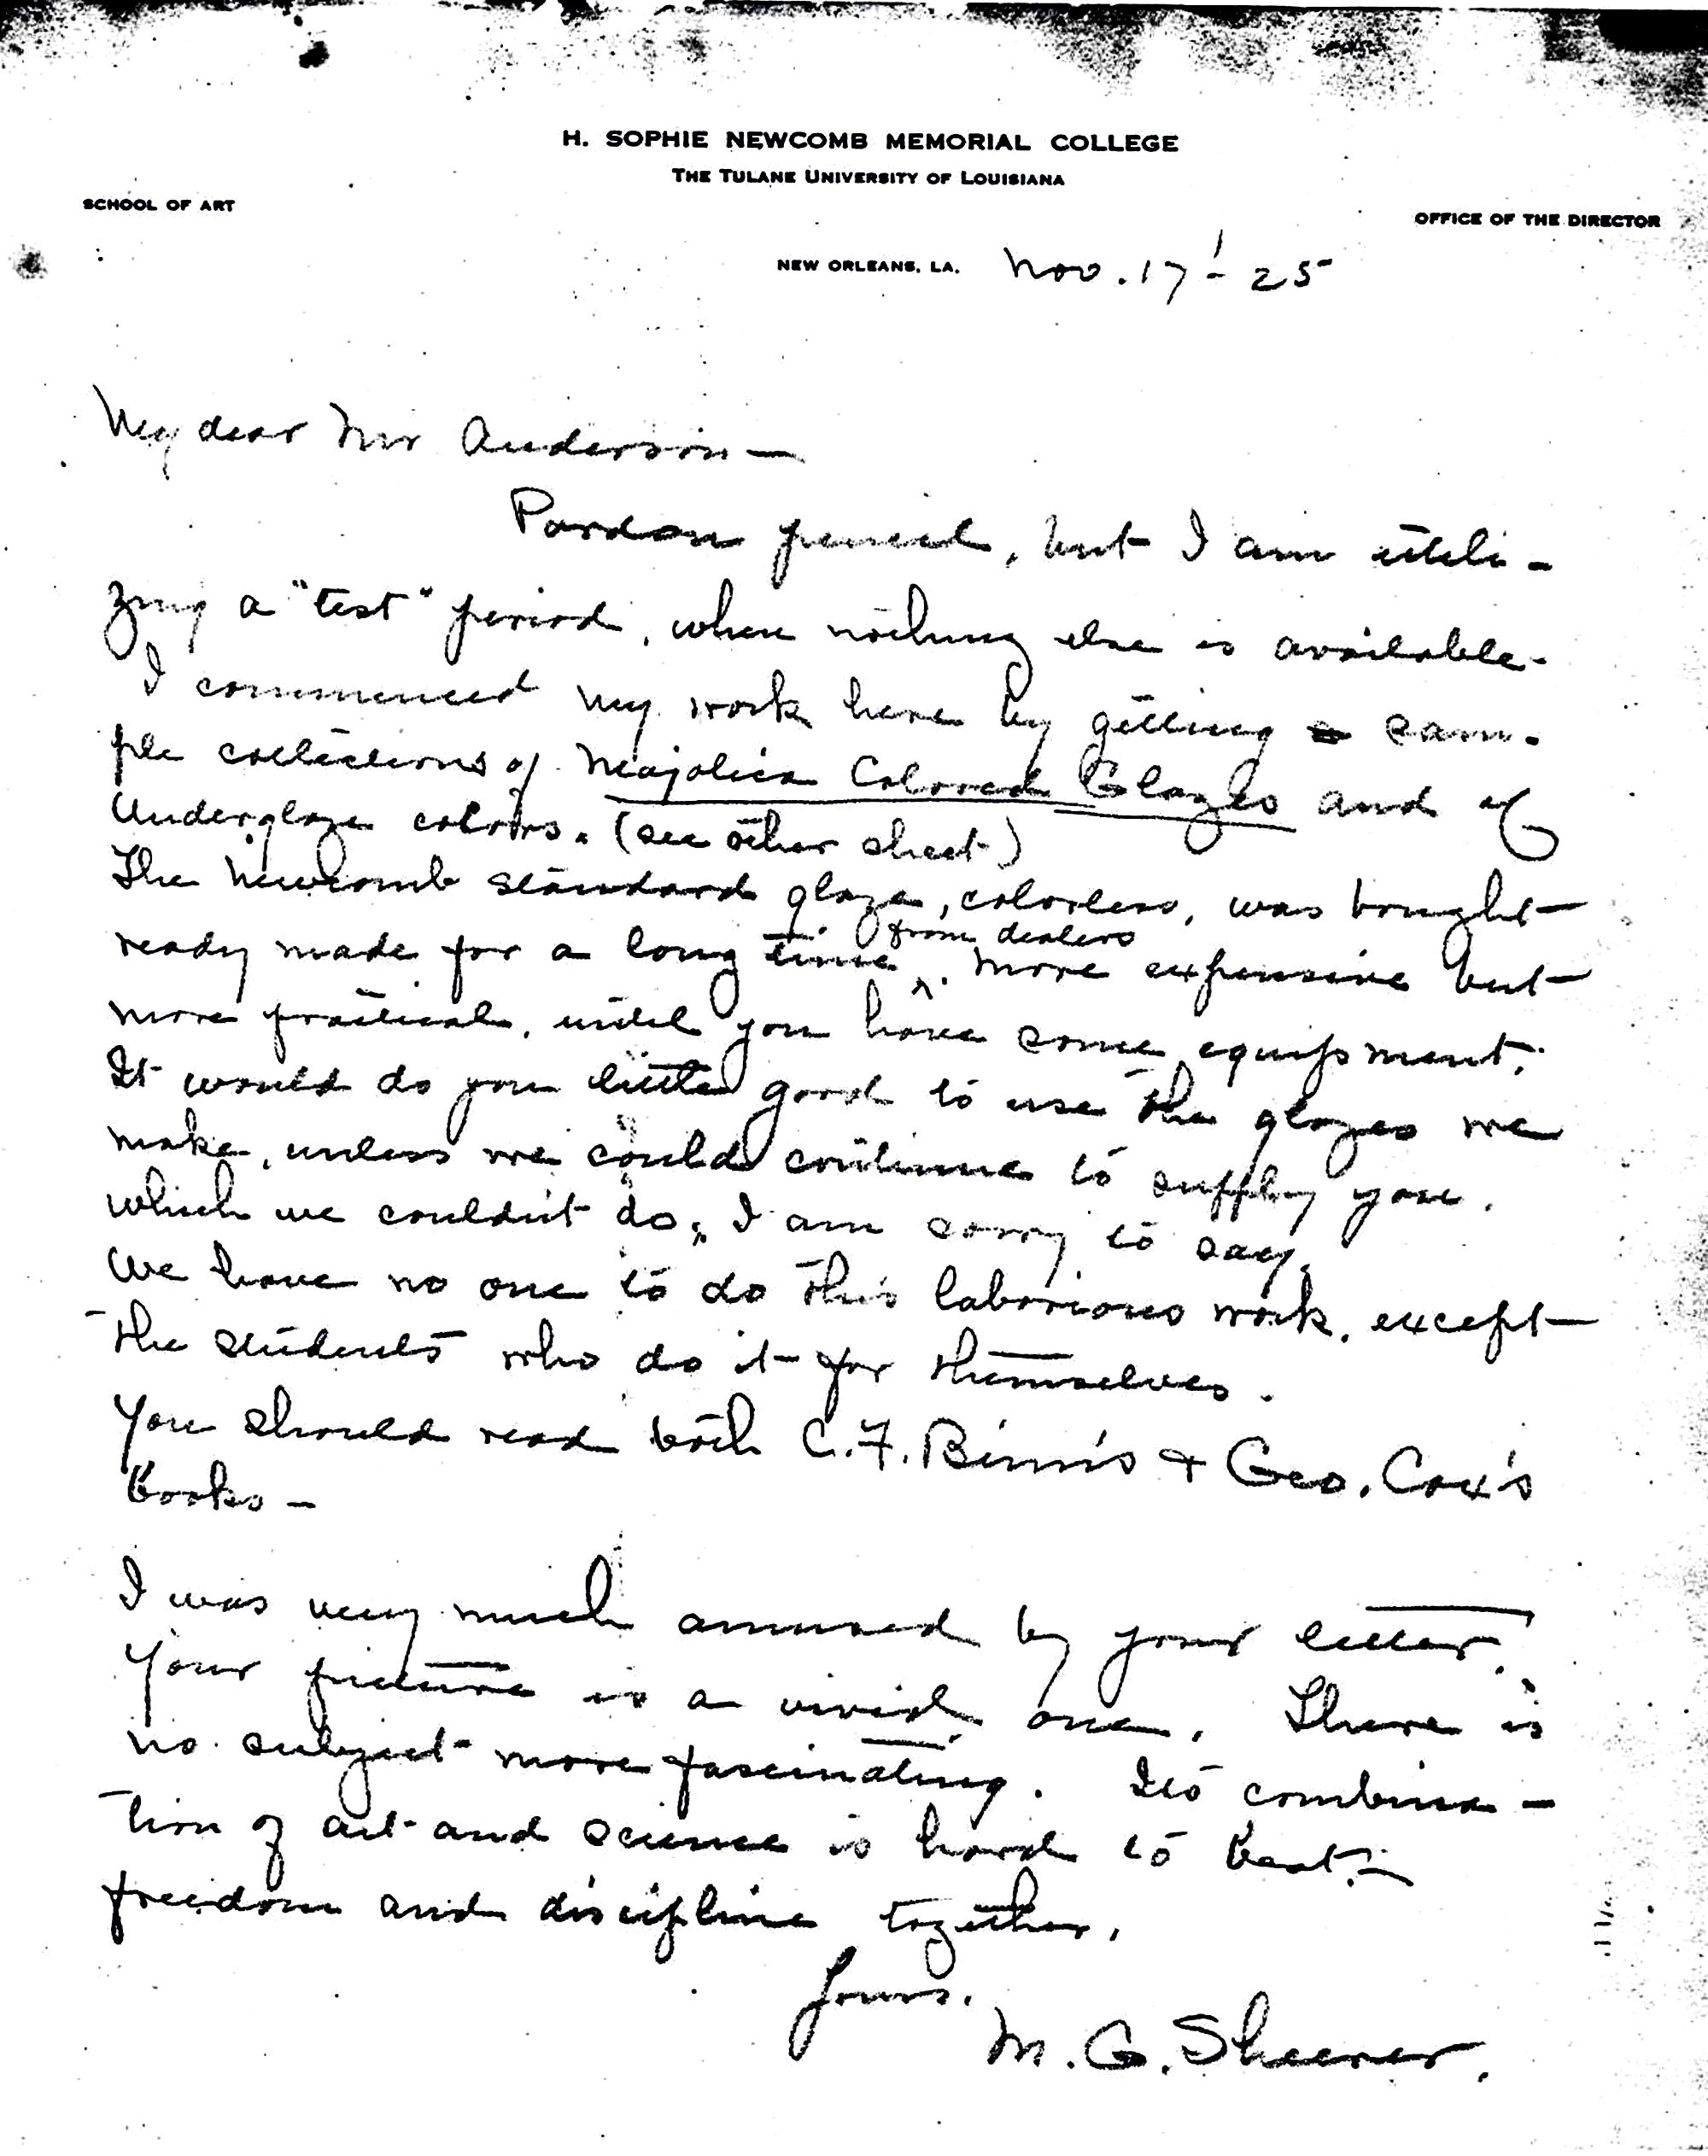 H. SOPHIE NEWCOMB MEMORIAL COLLEGE
THE TULANE UNIVERSITY OF LOUISIANA
SCHOOL OF ART
OFFICE OF THE DIRECTOR
NEW ORLEANS, LA. Nov. 17 - 25
My dear Mr Anderson —
Pardon pencil, but I am utili-
zing a "test" period, when nothing else is available.
I commenced my work here by getting sam-
ple collections of Majolica Colored Glazes and of
Underglaze colors. (see other sheet)
The Newcomb standard glaze, colorless, was bought
from dealers
ready made for a long time. More expensive but
more practical, until you have some equipment.
It would do you little good to use the glazes we
make, unless we could continue to supply you.
which we couldn't do, I am sorry to say.
We have no one to do this laborious work, except
the students who do it for themselves.
You should read both C. F. Binn's + Geo. Cox's
books —
I was very much amused by your letter.
Your picture is a vivid one. There is
no subject more fascinating. Its combina-
tion of art and science is hard to beat; —
freedom and discipline together.
Yours.
M. G. Sheerer.